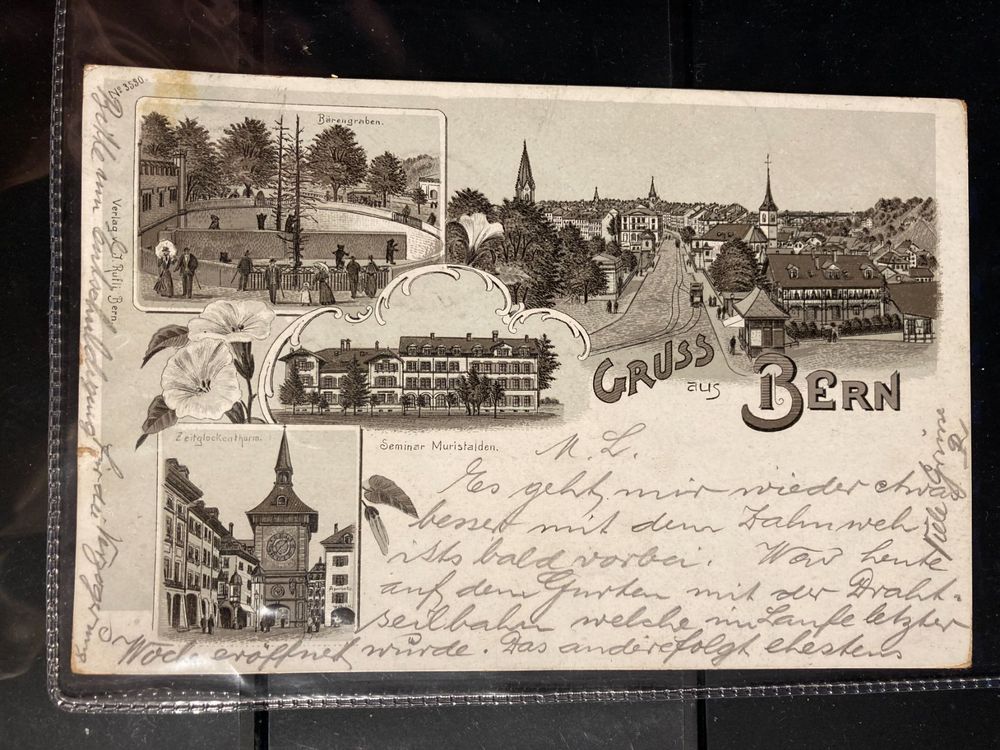 No 3530.
Bärengraben.
Verlag C. J. Rufli Bern
GRUSS
aus
BERN
Zeitglockenthurm.
Seminar Muristalden.
M. L.
Es geht mir wieder etwas
besser mit dem Zahnweh
ists bald vorbei. War heute
auf dem Gurten mit der Draht=
seilbahn welche im Laufe letzter
Woche eröffnet würde. Das andere folgt ehestens
Viele Grüsse
Bitte um
für die Verzögerung